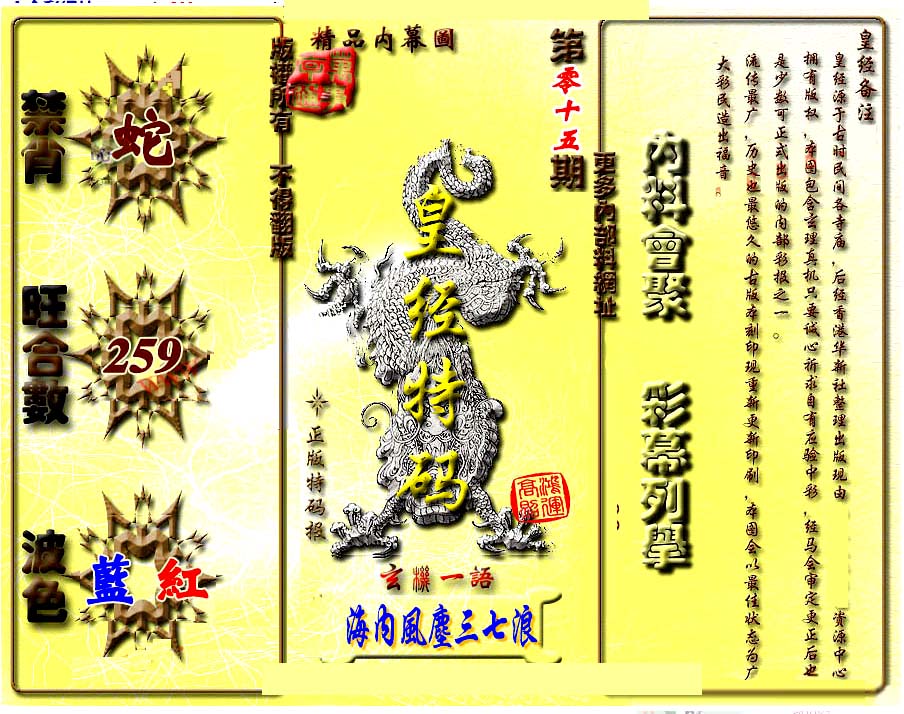 禁肖
蛇
旺合數
259
波色
藍 紅
版權所有 不得翻版
精品内幕圖
第零十五期
皇经特码
正版特码报
鴻運高照
玄機一語
海内風塵三七浪
更多内部料網址
内料會聚
彩幕列舉
皇经备注
皇经源于古时民间各寺庙，后经香港华新社整理出版现由 资源中心
拥有版权，本图包含玄理真机只要诚心祈求自有应验中彩，经马会审定更正后也
是少数可正式出版的内部彩报之一。
流传最广，历史也最悠久的古版本刻印现重新更新印刷，本图会以最佳状态为广
大彩民造出福音